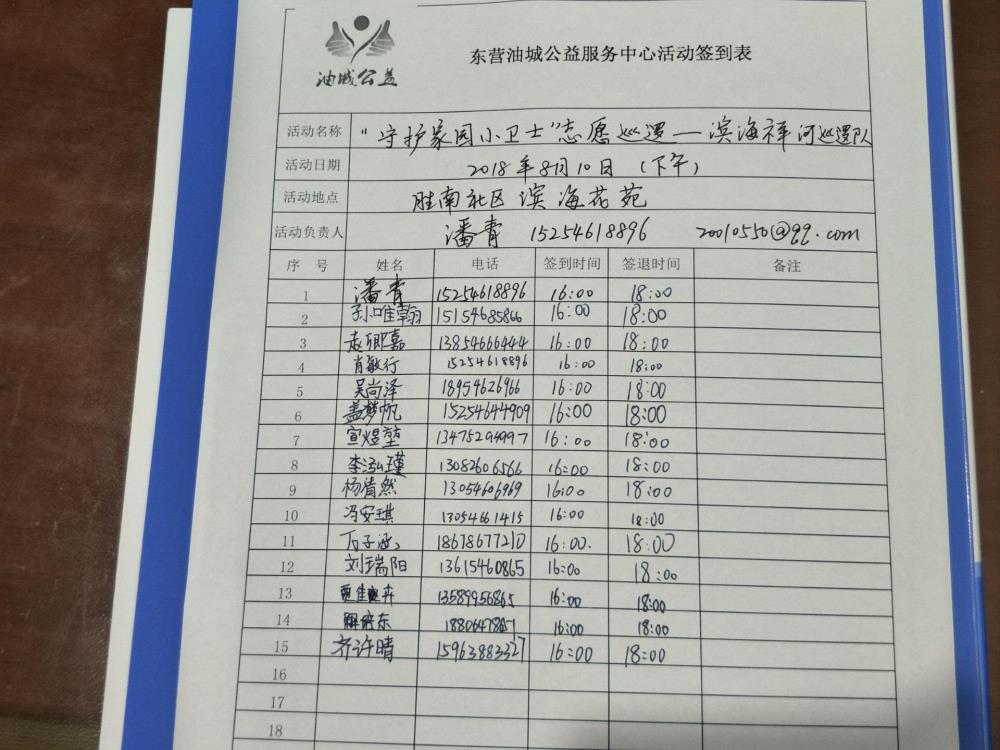 油城公益
东营油城公益服务中心活动签到表
活动名称 "守护家园小卫士"志愿巡逻—滨海祥河巡逻队
活动日期 2018年8月10日（下午）
活动地点 胜南社区滨海花苑
活动负责人 潘青 15254618896 20010550@qq.com
序号 姓名 电话 签到时间 签退时间 备注
1 潘青 15254618896 16:00 18:00
2 孙唯翰 15154685866 16:00 18:00
3 赵卿嘉 13854666444 16:00 18:00
4 肖敏行 15254618896 16:00 18:00
5 吴尚泽 18954626966 16:00 18:00
6 盖梦帆 15254644909 16:00 18:00
7 宣煜堃 13475294997 16:00 18:00
8 李泓瑾 13082606566 16:00 18:00
9 杨肯然 13054606969 16:00 18:00
10 冯安琪 13054661415 16:00 18:00
11 18678677210 16:00. 18:00
12 刘瑞阳 13615460865 16:00 18:00
13 13589956865 16:00 18:00
14 16:00 18:00
15 齐许晴 15963883327 16:00 18:00
16
17
18